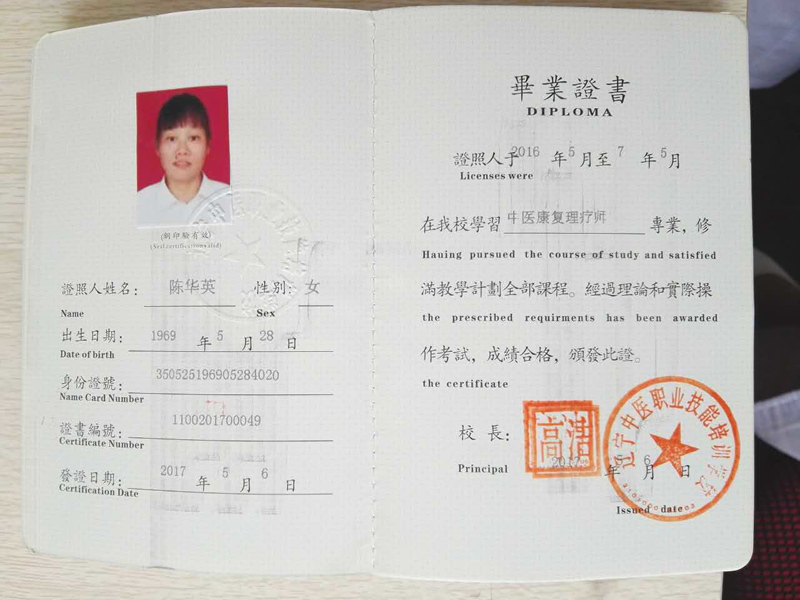 (鋼印驗有效)
(Seal certifications valid)
證照人姓名: 陈华英 性别: 女
Name Sex
出生日期: 1969 年 5 月 28 日
Date of birth
身份證號: 350525196905284020
Name Card Number
證書編號: 1100201700049
Certificate Number
發證日期: 2017 年 5 月 6 日
Certification Date
畢業證書
DIPLOMA
證照人于 2016 年 5 月至 7 年 5 月
Licenses were
在我校學習 中医康复理疗师 專業，修
Hauing pursued the course of study and satisfied
滿教學計劃全部課程。經過理論和實際操
the prescribed requirments has been awarded
作考試，成績合格，頒發此證。
the certificate
校 長:
Principal
2017 年 5 月 6 日
Issued date
辽宁中医职业技能培训学校